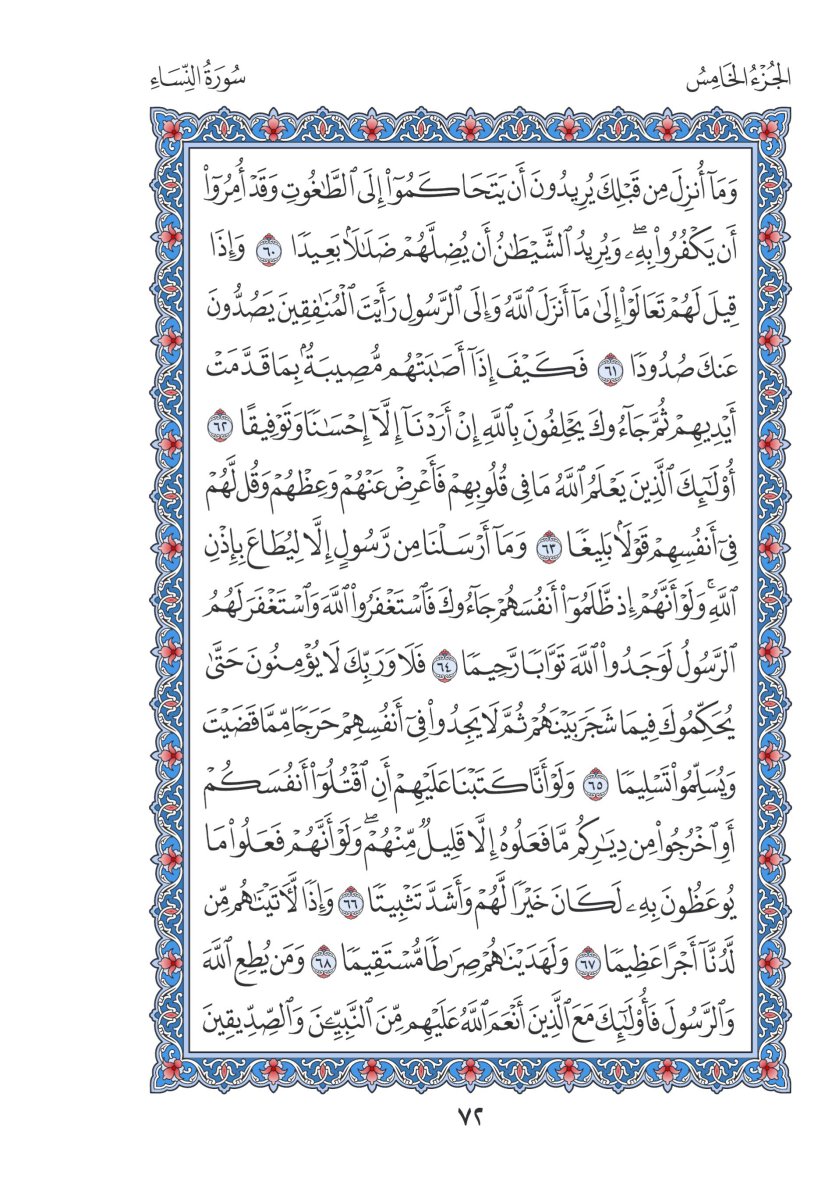 الجُزْءُ الخَامِسُ
سُورَةُ النِّسَاءِ
وَمَآ أُنزِلَ مِن قَبْلِكَ يُرِيدُونَ أَن يَتَحَاكَمُوٓا۟ إِلَى ٱلطَّٰغُوتِ وَقَدْ أُمِرُوٓا۟
أَن يَكْفُرُوا۟ بِهِۦۖ وَيُرِيدُ ٱلشَّيْطَٰنُ أَن يُضِلَّهُمْ ضَلَٰلَۢا بَعِيدًا ٦٠ وَإِذَا
قِيلَ لَهُمْ تَعَالَوْا۟ إِلَىٰ مَآ أَنزَلَ ٱللَّهُ وَإِلَى ٱلرَّسُولِ رَأَيْتَ ٱلْمُنَٰفِقِينَ يَصُدُّونَ
عَنكَ صُدُودًا ٦١ فَكَيْفَ إِذَآ أَصَٰبَتْهُم مُّصِيبَةُۢ بِمَا قَدَّمَتْ
أَيْدِيهِمْ ثُمَّ جَآءُوكَ يَحْلِفُونَ بِٱللَّهِ إِنْ أَرَدْنَآ إِلَّآ إِحْسَٰنًا وَتَوْفِيقًا ٦٢
أُو۟لَٰٓئِكَ ٱلَّذِينَ يَعْلَمُ ٱللَّهُ مَا فِى قُلُوبِهِمْ فَأَعْرِضْ عَنْهُمْ وَعِظْهُمْ وَقُل لَّهُمْ
فِىٓ أَنفُسِهِمْ قَوْلَۢا بَلِيغًا ٦٣ وَمَآ أَرْسَلْنَا مِن رَّسُولٍ إِلَّا لِيُطَاعَ بِإِذْنِ
ٱللَّهِۚ وَلَوْ أَنَّهُمْ إِذ ظَّلَمُوٓا۟ أَنفُسَهُمْ جَآءُوكَ فَٱسْتَغْفَرُوا۟ ٱللَّهَ وَٱسْتَغْفَرَ لَهُمُ
ٱلرَّسُولُ لَوَجَدُوا۟ ٱللَّهَ تَوَّابًا رَّحِيمًا ٦٤ فَلَا وَرَبِّكَ لَا يُؤْمِنُونَ حَتَّىٰ
يُحَكِّمُوكَ فِيمَا شَجَرَ بَيْنَهُمْ ثُمَّ لَا يَجِدُوا۟ فِىٓ أَنفُسِهِمْ حَرَجًا مِّمَّا قَضَيْتَ
وَيُسَلِّمُوا۟ تَسْلِيمًا ٦٥ وَلَوْ أَنَّا كَتَبْنَا عَلَيْهِمْ أَنِ ٱقْتُلُوٓا۟ أَنفُسَكُمْ
أَوِ ٱخْرُجُوا۟ مِن دِيَٰرِكُم مَّا فَعَلُوهُ إِلَّا قَلِيلٌ مِّنْهُمْۖ وَلَوْ أَنَّهُمْ فَعَلُوا۟ مَا
يُوعَظُونَ بِهِۦ لَكَانَ خَيْرًا لَّهُمْ وَأَشَدَّ تَثْبِيتًا ٦٦ وَإِذًا لَّءَاتَيْنَٰهُم مِّن
لَّدُنَّآ أَجْرًا عَظِيمًا ٦٧ وَلَهَدَيْنَٰهُمْ صِرَٰطًا مُّسْتَقِيمًا ٦٨ وَمَن يُطِعِ ٱللَّهَ
وَٱلرَّسُولَ فَأُو۟لَٰٓئِكَ مَعَ ٱلَّذِينَ أَنْعَمَ ٱللَّهُ عَلَيْهِم مِّنَ ٱلنَّبِيِّۦنَ وَٱلصِّدِّيقِينَ
٧٢